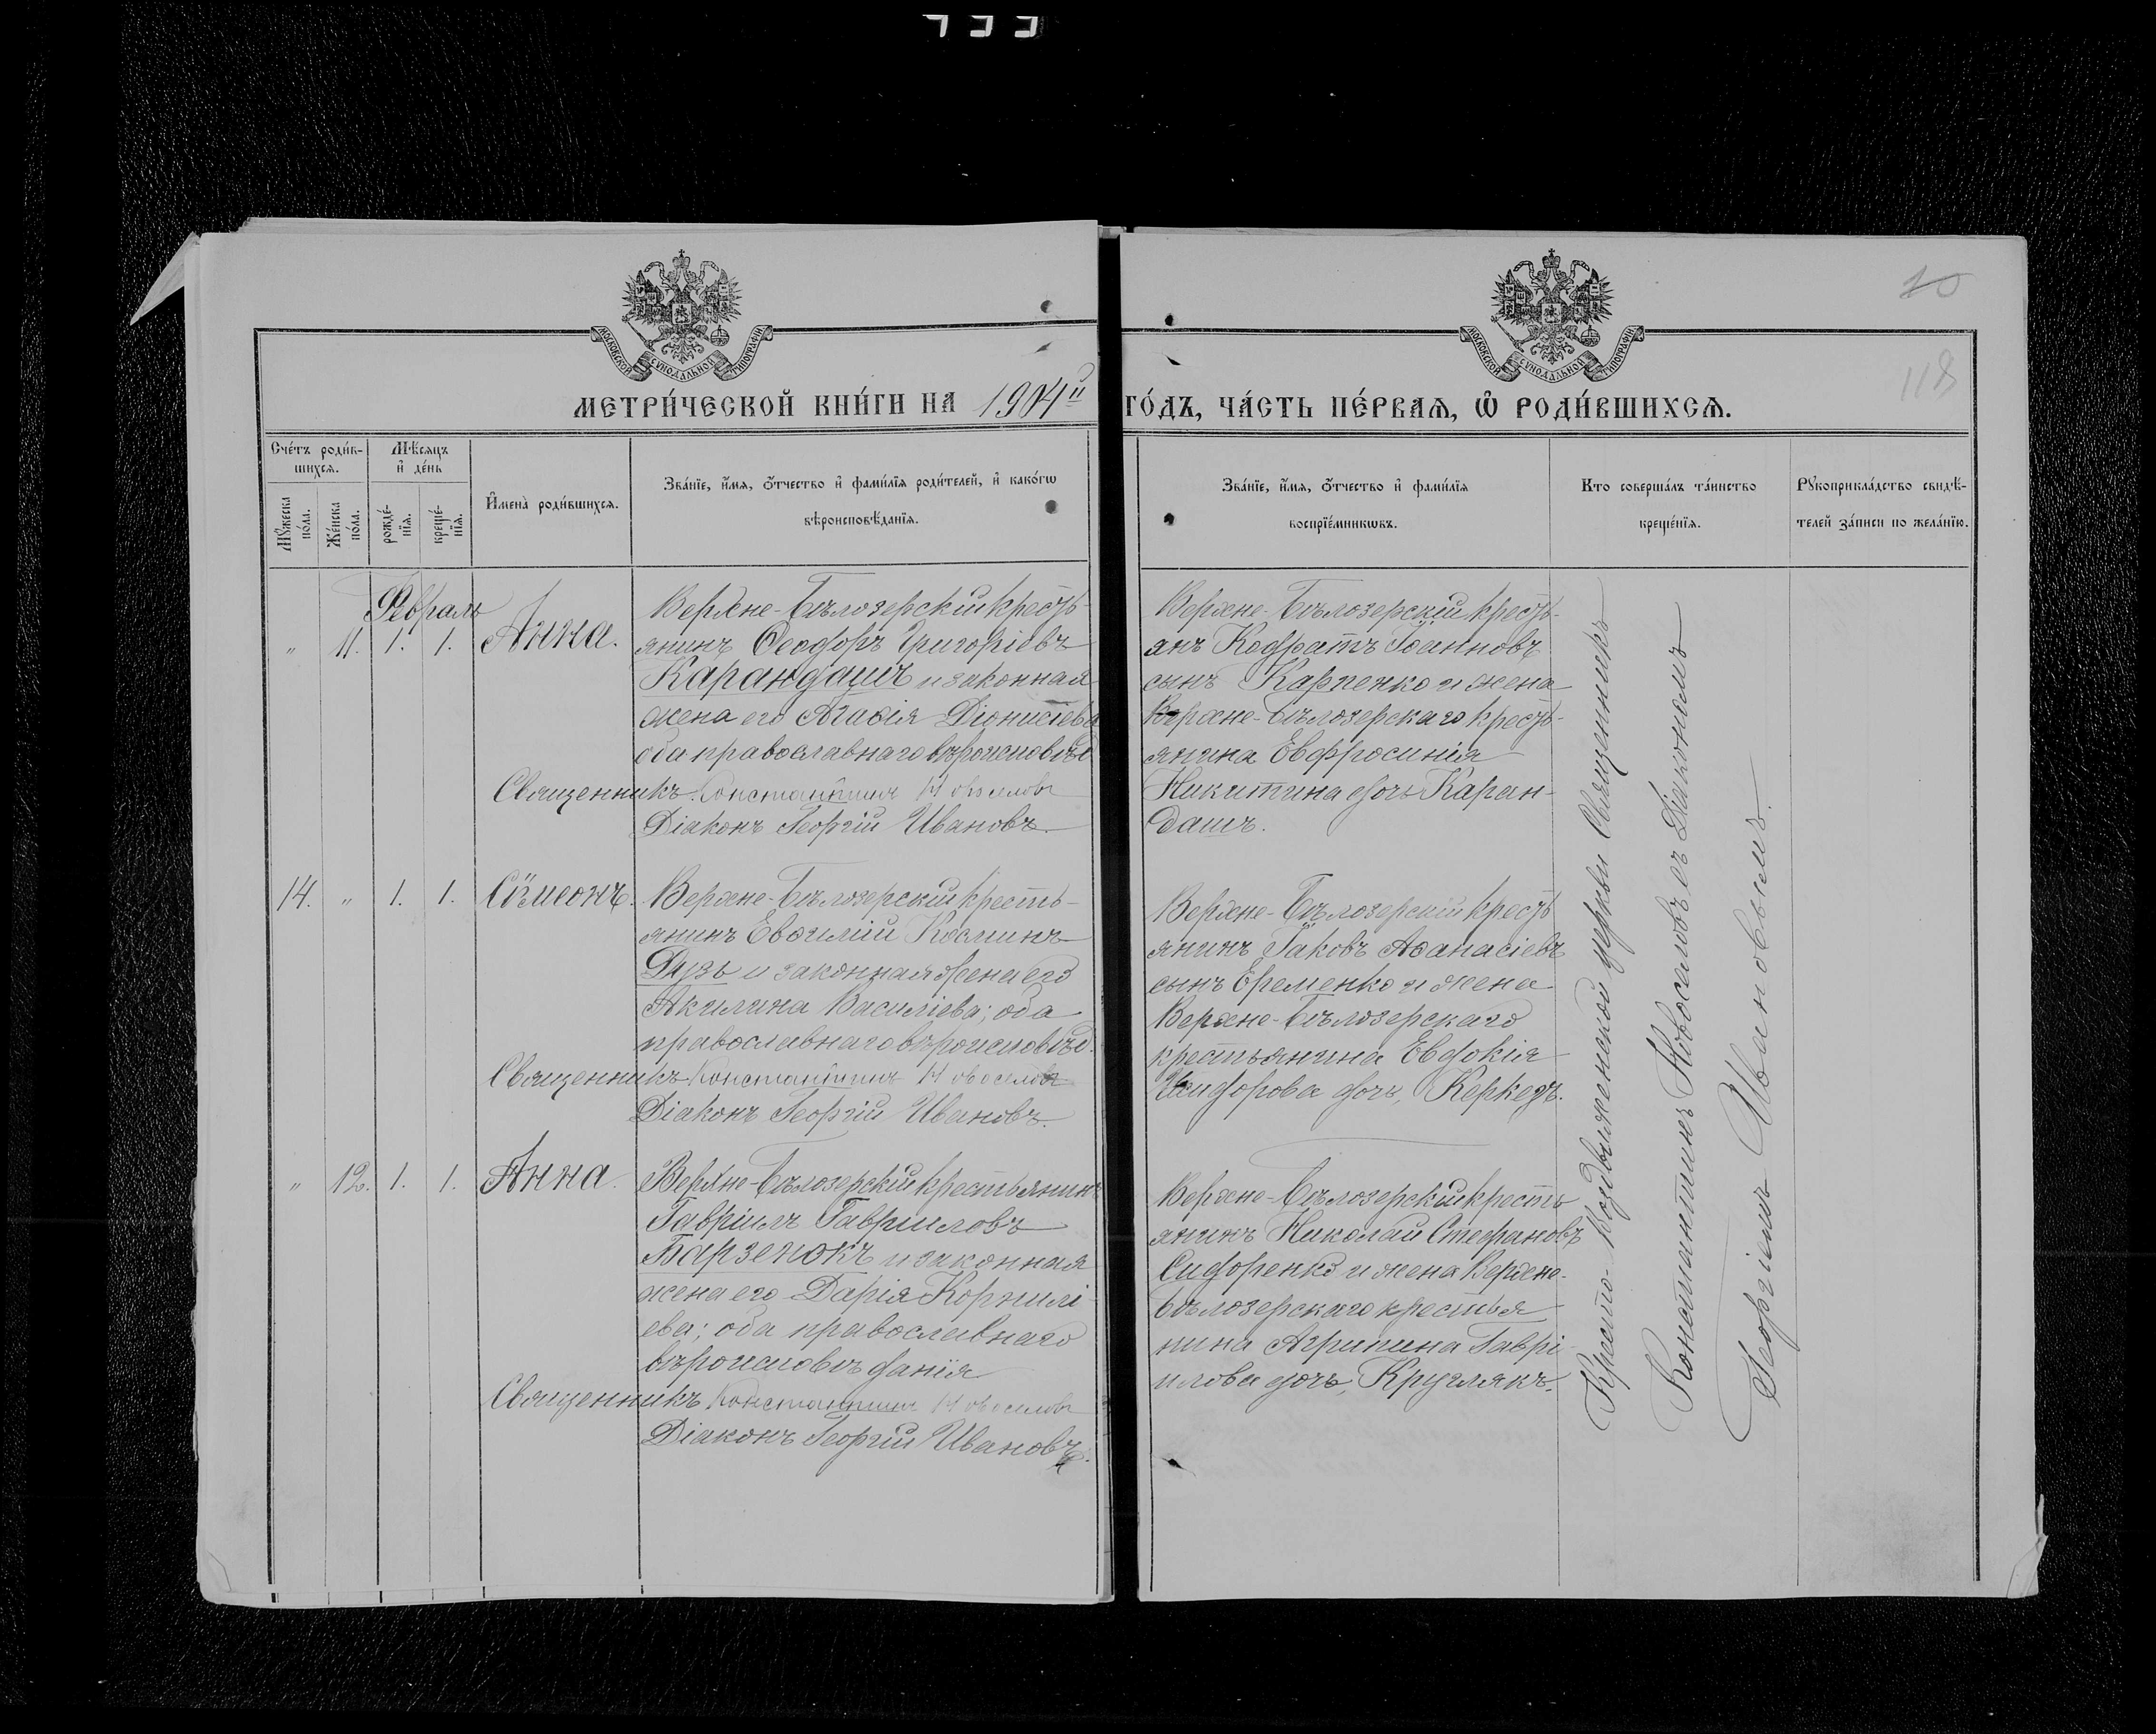 433
20
118
МОСКОВСКОЙ СѴНОДАЛЬНОЙ ТИПОГРАФІИ
МОСКОВСКОЙ СѴНОДАЛЬНОЙ ТИПОГРАФІИ
МЕТРИ́ЧЕСКОЙ КНИ́ГИ НА 1904й ГО́ДЪ, ЧА́СТЬ ПЕ́РВАѦ, Ѡ РОДИ́ВШИХСѦ.
Сче́тъ роди́в-
шихсѧ.
Мꙋжеска по́ла.
Же́нска по́ла.
Мѣ́сѧцъ
и де́нь
рожде́-
нїѧ.
креще́-
нїѧ.
Имена̀ роди́вшихсѧ.
Зва́нїе, и́мѧ, ѻ́тчество и фами́лїѧ роди́телей, и како́гѡ
вѣроисповѣ́данїѧ.
Зва́нїе, и́мѧ, ѻ́тчество и фами́лїѧ
воспрїе́мникѡвъ.
Кто соверша́лъ та́инство
креще́нїѧ.
Рꙋкоприкла́дство свидѣ́-
телей за́писи по жела́нїю.
Февраль
" 11. 1. 1. Анна.
Верхне-Бѣлозерскій кресть-
янинъ Ѳеодоръ Григоріевъ
Карандашъ и законная
жена его Агаѳія Діонисіева
оба православнаго вѣроисповѣд
Священникъ Константинъ Новоселовъ
Діаконъ Георгій Ивановъ.
Верхне-Бѣлозерскій кресть-
янъ Кодратъ Іоанновъ
сынъ Карпенко и жена
Верхне-Бѣлозерскаго кресть-
янина Евфросинія
Никитина дочь Каран-
дашъ.
14. " 1. 1. Сѵмеонъ.
Верхне-Бѣлозерскій кресть-
янинъ Евѳимій Косминъ
Дузь и законная жена его
Акилина Василіева; оба
православнаго вѣроисповѣд.
Священникъ Константинъ Новоселовъ
Діаконъ Георгій Ивановъ.
Верхне-Бѣлозерскій кресть
янинъ Іаковъ Аѳанасіевъ
сынъ Еременко и жена
Верхне-Бѣлозерскаго
крестьянина Евдокія
Исидорова дочь,
" 12. 1. 1. Анна.
Верхне-Бѣлозерскій крестьянинъ
Гавріилъ Гавріиловъ
Барзенокъ и законная
жена его Дарія Корнилі-
ева; оба православнаго
вѣроисповѣданія
Священникъ Константинъ Новоселовъ
Діаконъ Георгій Ивановъ.
Верхне-Бѣлозерскій кресть
янинъ Николай Стефановъ
Сидоренко и жена Верхне-
Бѣлозерскаго крестья
нина Агрипина Гаврі-
илова дочь, Круглякъ.
Кресто-Воздвиженской церкви Священникъ
Константинъ Новоселовъ съ Діакономъ
Георгіемъ Ивановымъ.